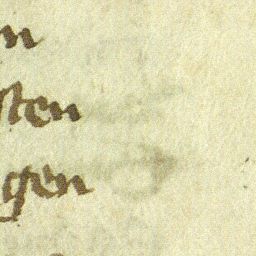 n
sten
gen